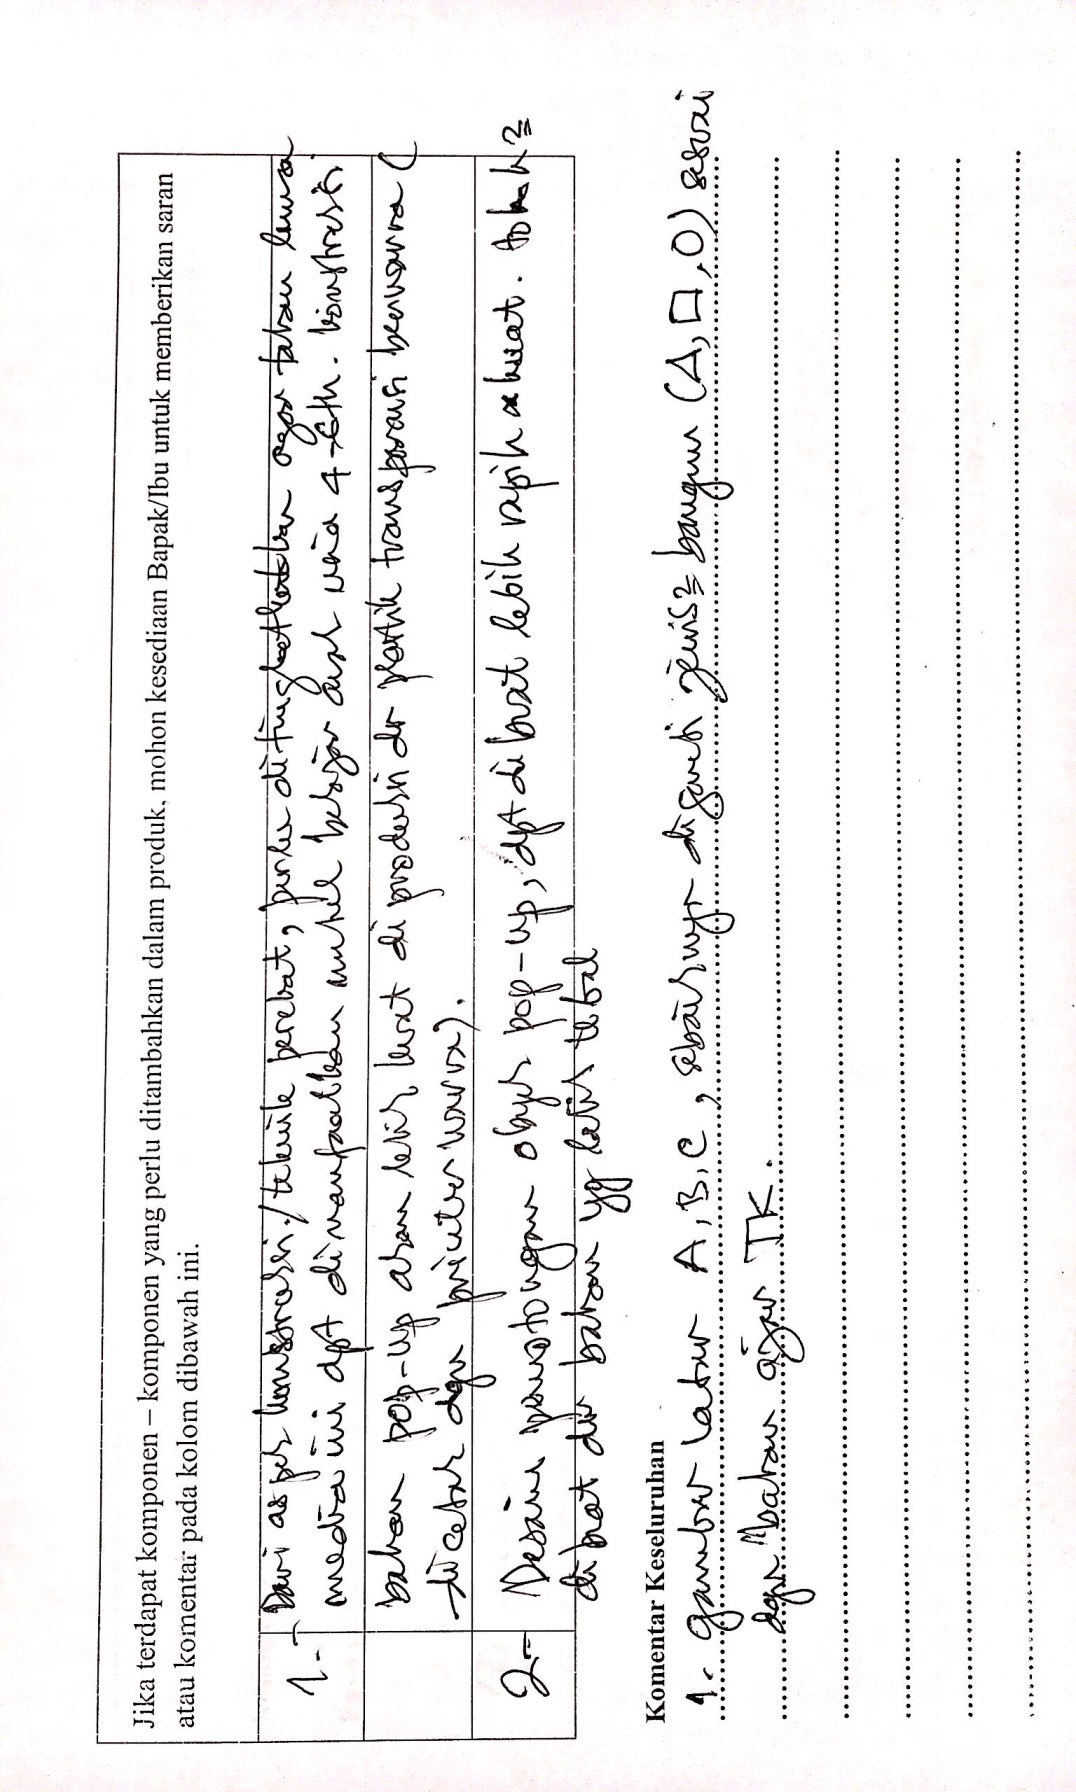 Jika terdapat komponen – komponen yang perlu ditambahkan dalam produk, mohon kesediaan Bapak/Ibu untuk memberikan saran
atau komentar pada kolom dibawah ini.
1. - Dari aspek konstruksi / teknik perekat, perlu ditingkatkan agar tahan lama
media ini dpt dimanfaatkan untuk belajar anak usia 4-6th. konstruksi
bahan pop-up akan lebih kuat di produksi dr plastik transparansi berwarna (
dicetak dgn printer warna).
2 - Desain potongan obyek pop-up, dpt di buat lebih rapih & kuat. tokoh2
di buat dr bahan yg lebih tebal
Komentar Keseluruhan
1. gambar latar A, B, C, sebaiknya diganti jenis2 bangun (△, □, O) sesuai
dgn bahan ajar TK.